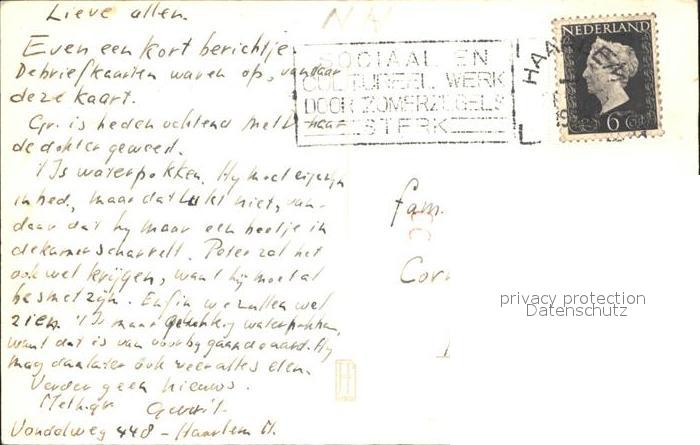 Lieve allen.
Even een kort berichtje
De briefkaarten waren op, vandaar
deze kaart.
Gr. is heden ochtend met haar
de dokter geweest.
't Is waterpokken. Hy moet eigenlyk
in bed, maar dat lukt niet, van-
daar dat hy maar een beetje in
de kamer scharrelt. Peter zal het
ook wel krijgen, want hij moet al
besmet zijn. Enfin we zullen wel
zien. 't Is maar gelukkig waterpokken,
want dat is van voorbygaande aard. Hy
mag daalater ook weer alles eten.
Verder geen nieuws.
Met h. gr. Gerrit.
Vondelweg 448 - Haarlem N.
NH
SOCIAAL EN
CULTUREEL WERK
DOOR ZOMERZEGELS
STERK
HAARLEM
NEDERLAND
6
fam.
Corn
privacy protection
Datenschutz